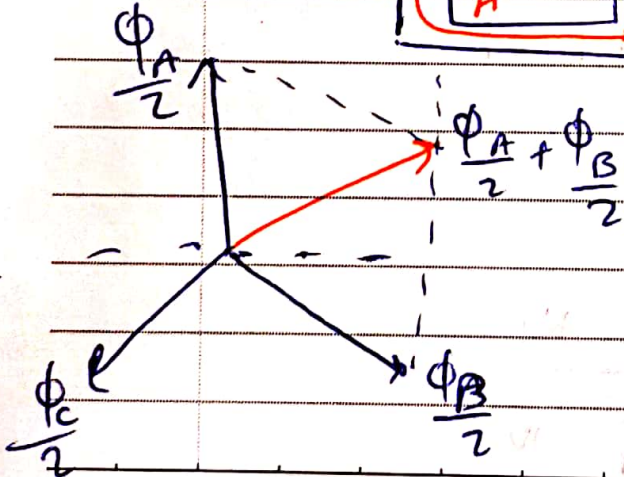 A
ϕ_A/2
ϕ_A/2 + ϕ_B/2
ϕ_C/2
ϕ_B/2